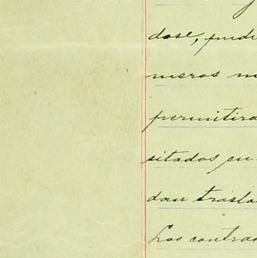 dose, pudi
meros m
permitirá
sitados en
dan trasla
Los contra